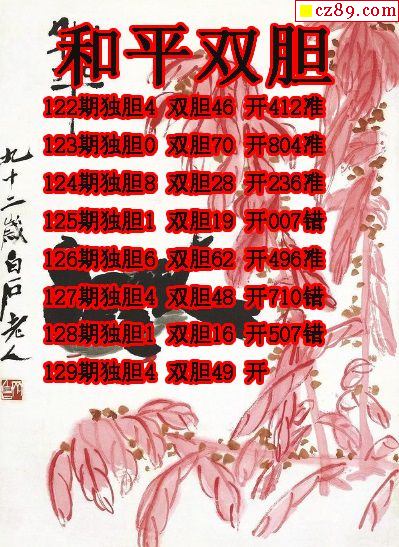 cz89.com
和平双胆
122期独胆4 双胆46 开412准
123期独胆0 双胆70 开804准
124期独胆8 双胆28 开236准
125期独胆1 双胆19 开007错
126期独胆6 双胆62 开496准
127期独胆4 双胆48 开710错
128期独胆1 双胆16 开507错
129期独胆4 双胆49 开
九十二岁白石老人